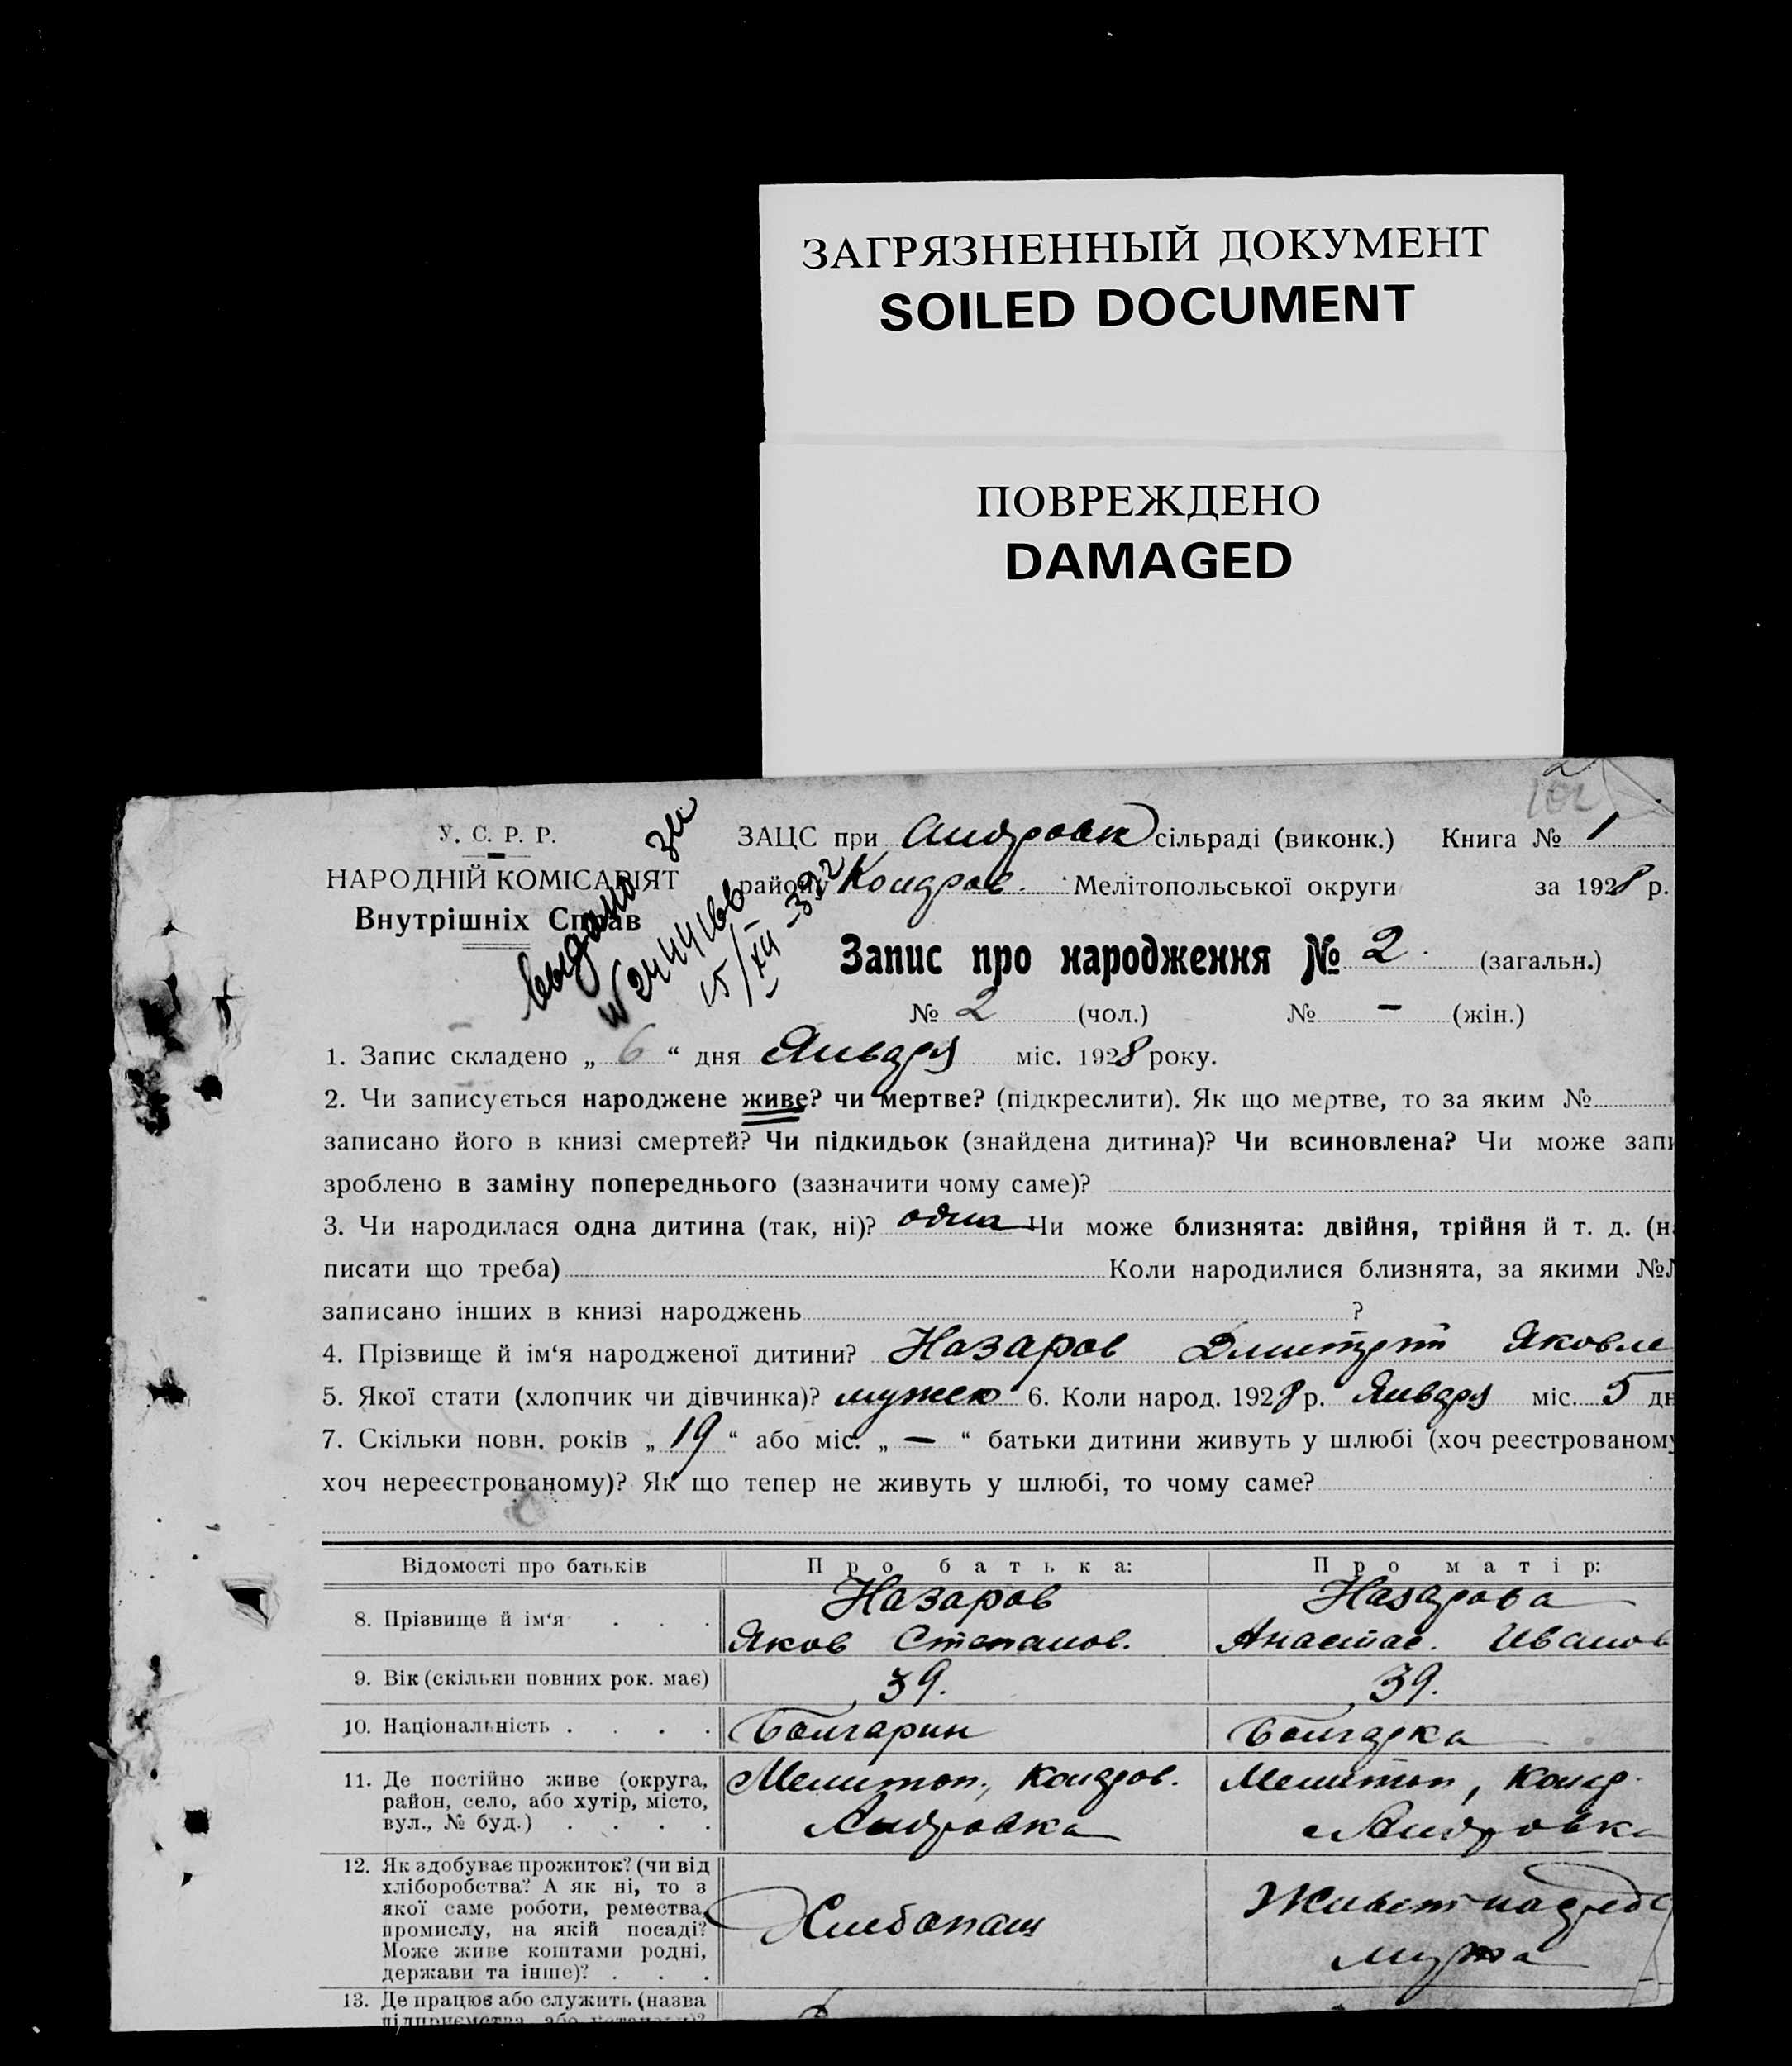 ЗАГРЯЗНЕННЫЙ ДОКУМЕНТ
SOILED DOCUMENT
ПОВРЕЖДЕНО
DAMAGED
У. С. Р. Р.
НАРОДНІЙ КОМІСАРІЯТ
Внутрішніх Справ
выдано за
№ 2444166
15/XII-392
ЗАЦС при Андровк сільраді (виконк.) Книга № 1
району Кондров. Мелітопольської округи за 1928 р.
Запис про народження № 2. (загальн.)
№ 2 (чол.) № — (жін.)
1. Запис складено „ 6 “ дня Января міс. 1928 року.
2. Чи записується народжене живе? чи мертве? (підкреслити). Як що мертве, то за яким №
записано його в книзі смертей? Чи підкидьок (знайдена дитина)? Чи всиновлена? Чи може запи
зроблено в заміну попереднього (зазначити чому саме)?
3. Чи народилася одна дитина (так, ні)? одна Чи може близнята: двійня, трійня й т. д. (на
писати що треба) Коли народилися близнята, за якими №№
записано інших в книзі народжень ?
4. Прізвище й ім‘я народженої дитини? Назаров Дмитрий Яковле
5. Якої стати (хлопчик чи дівчинка)? мужск 6. Коли народ. 1928 р. Января міс. 5 дн
7. Скільки повн. років „ 19 “ або міс. „ — “ батьки дитини живуть у шлюбі (хоч реєстрованому
хоч нереєстрованому)? Як що тепер не живуть у шлюбі, то чому саме?
Відомості про батьків Про батька: Про матір:
8. Прізвище й ім‘я . . . Назаров Яков Степанов. Назарова Анастас. Иванов
9. Вік (скільки повних рок. має) 39. 39.
10. Національність . . . . Болгарин Болгарка
11. Де постійно живе (округа,
район, село, або хутір, місто,
вул., № буд.) . . . .
Мелитоп., Кондров.
Андровка
Мелитоп, Конд.
Андровка
12. Як здобуває прожиток? (чи від
хліборобства? А як ні, то з
якої саме роботи, ремества,
промислу, на якій посаді?
Може живе коштами родні,
держави та інше)? . . .
Хлебопаш
Живет на сред
мужа
13. Де працює або служить (назва
підприємства, або установи)?